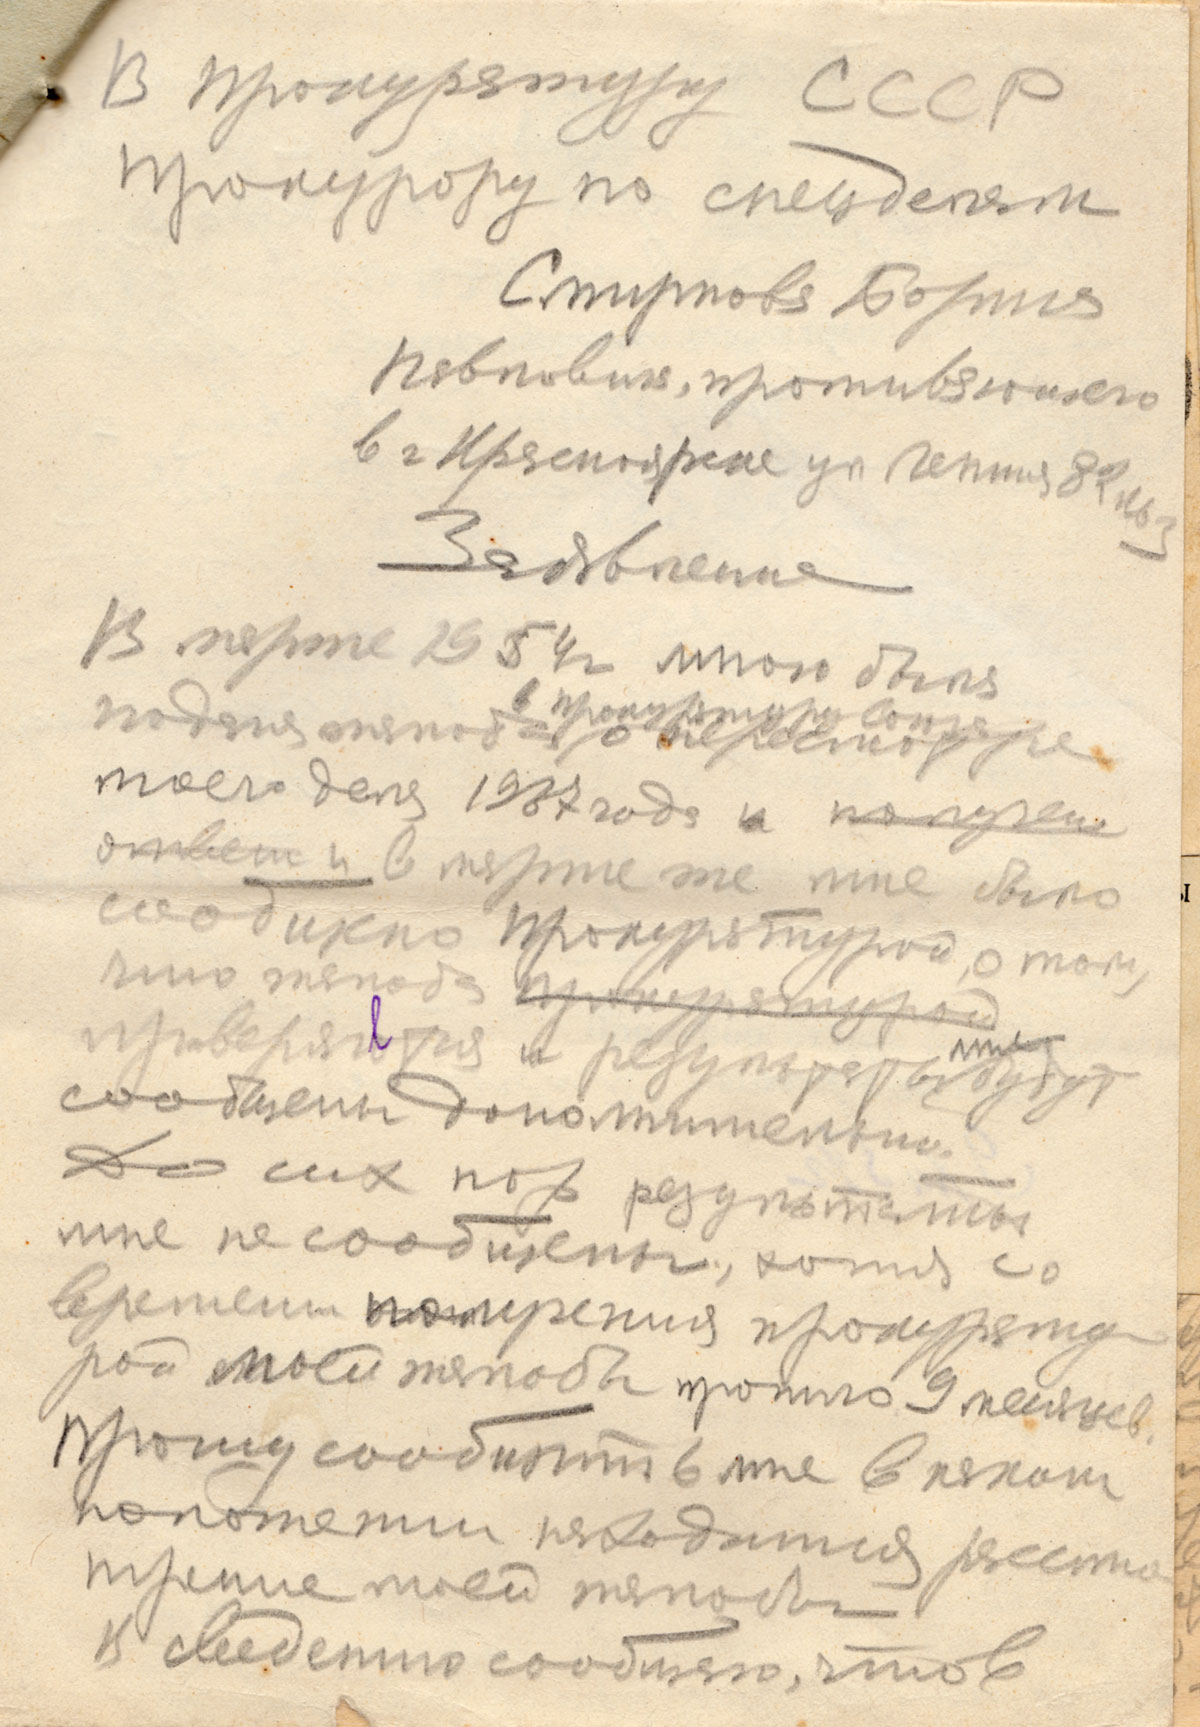 В Прокуратуру СССР
Прокурору по спецделам
Смирнова Бориса
Павловича, проживающего
в г Красноярске ул Ленина 82 кв 3
Заявление
В марте 1954 г мною была
в прокуратуру Союза
подана жалоба о пересмотре
моего дела 1937 года и получен
ответ и в марте же мне было
сообщено Прокуратурой, о том,
что жалоба прокуратурой
проверяется и результаты мне будут
сообщены дополнительно.
До сих пор результаты
мне не сообщены, хотя со
времени получения прокурату
рой моей жалобы прошло 9 месяцев.
Прошу сообщить мне в каком
положении находится рассмо
трение моей жалобы
К сведению сообщаю, что в
ы